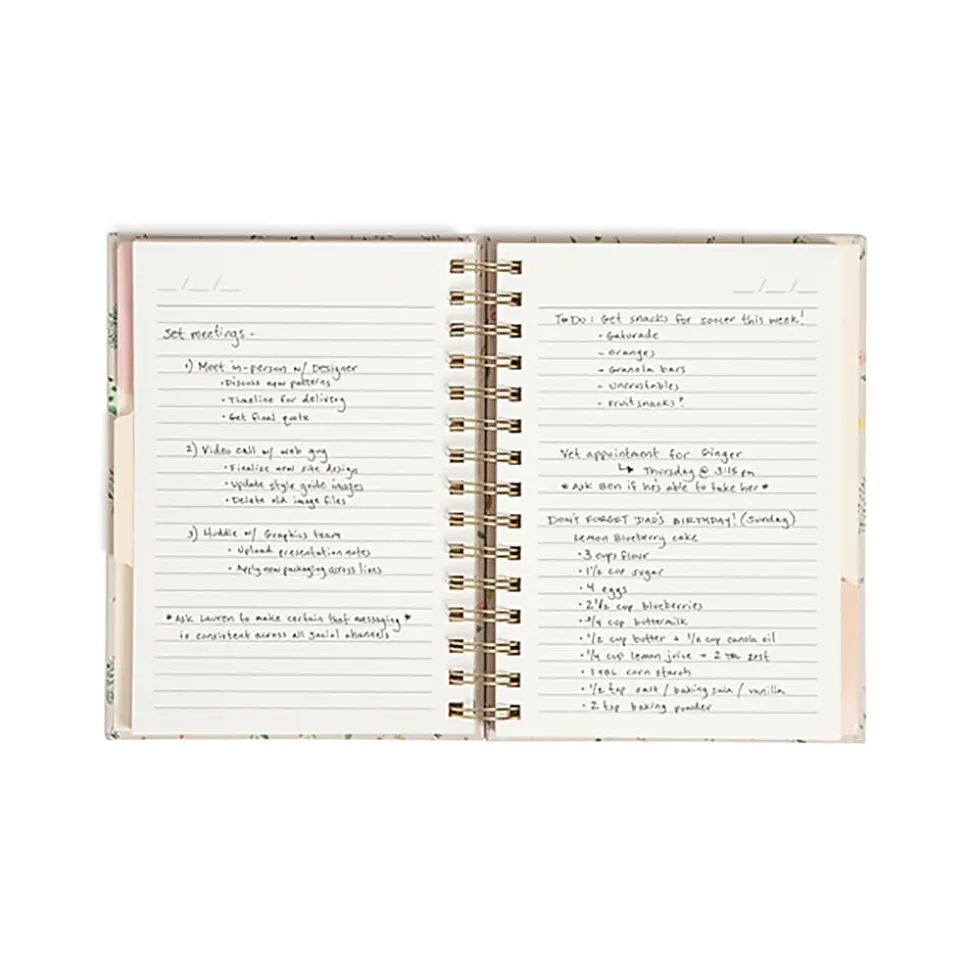 __/__/__
Set meetings -
1) Meet in-person w/ Designer
• Discuss new patterns
• Timeline for delivery
• Get final quote
2) Video call w/ web guy
• Finalize new site design
• Update style guide images
• Delete old image files
3) Huddle w/ Graphics team
• Upload presentation notes
• Apply new packaging across lines
* Ask Lauren to make certain that messaging *
is consistent across all social channels
__/__/__
To Do: Get snacks for soccer this week!
- Gatorade
- Oranges
- Granola bars
- Uncrustables
- Fruit snacks?
Vet appointment for Ginger
↳ Thursday @ 3:15 pm
* Ask Ben if he's able to take her *
DON'T FORGET DAD'S BIRTHDAY! (Sunday)
Lemon Blueberry cake
• 3 cups flour
• 1 1/2 cup sugar
• 4 eggs
• 2 1/2 cup blueberries
• 3/4 cup buttermilk
• 1/2 cup butter + 1/2 cup canola oil
• 1/4 cup lemon juice + 2 TBL zest
• 1 TBL corn starch
• 1/2 tsp salt / baking soda / vanilla
• 2 tsp baking powder